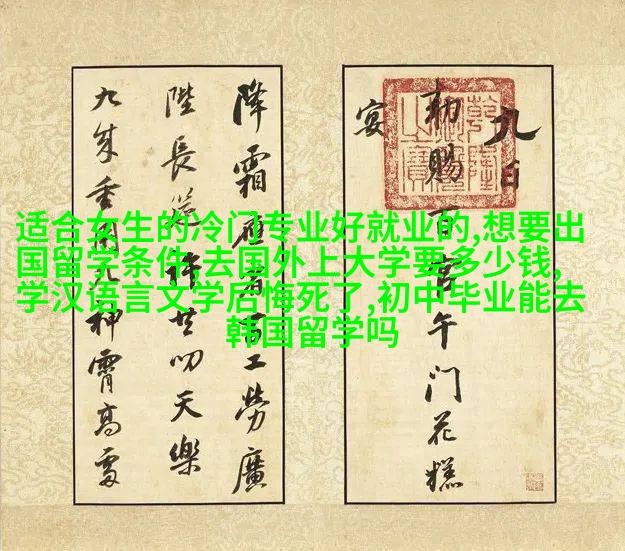 适合女生的冷门专业好就业的,想要出
国留学条件,去国外上大学要多少钱,
学汉语言文学后悔死了,初中毕业能去
韩国留学吗
九日
勅賜百官午門花糕
宴
降霜應百工勞廣
陛長筵許共叨天樂
九成重神霄高